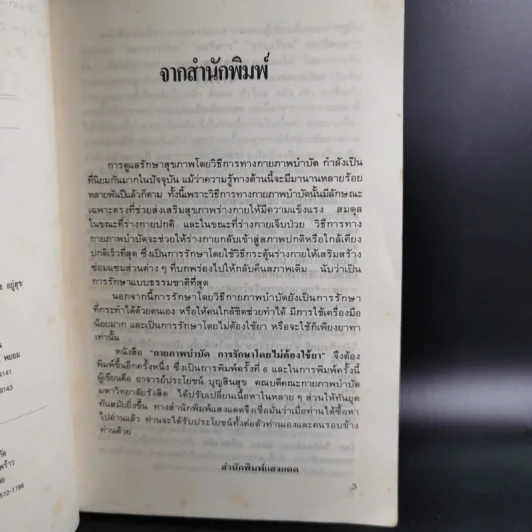 จากสำนักพิมพ์
การดูแลรักษาสุขภาพโดยวิธีการทางกายภาพบำบัด กำลังเป็น
ที่นิยมกันมากในปัจจุบัน แม้ว่าความรู้ทางด้านนี้จะมีมานานหลายร้อย
หลายพันปีแล้วก็ตาม ทั้งนี้เพราะวิธีการทางกายภาพบำบัดนั้นมีลักษณะ
เฉพาะตรงที่ช่วยส่งเสริมสุขภาพร่างกายให้มีความแข็งแรง สมดุล
ในขณะที่ร่างกายปกติ และในขณะที่ร่างกายเจ็บป่วย วิธีการทาง
กายภาพบำบัดจะช่วยให้ร่างกายกลับเข้าสู่สภาพปกติหรือใกล้เคียง
ปกติเร็วที่สุด ซึ่งเป็นการรักษาโดยใช้วิธีกระตุ้นร่างกายให้เสริมสร้าง
ซ่อมแซมส่วนต่าง ๆ ที่บกพร่องไปให้กลับคืนสภาพเดิม นับว่าเป็น
การรักษาแบบธรรมชาติที่สุด
นอกจากนี้การรักษาโดยวิธีกายภาพบำบัดยังเป็นการรักษา
ที่กระทำได้ด้วยตนเอง หรือให้คนใกล้ชิดช่วยทำได้ มีการใช้เครื่องมือ
น้อยมาก และเป็นการรักษาโดยไม่ต้องใช้ยา หรือจะใช้ก็เพียงยาทา
เท่านั้น
หนังสือ "กายภาพบำบัด การรักษาโดยไม่ต้องใช้ยา" จึงต้อง
พิมพ์ขึ้นอีกครั้งหนึ่ง ซึ่งเป็นการพิมพ์ครั้งที่ 6 และในการพิมพ์ครั้งนี้
ผู้เขียนคือ อาจารย์ประโยชน์ บุญสินสุข คณบดีคณะกายภาพบำบัด
มหาวิทยาลัยรังสิต ได้ปรับเปลี่ยนเนื้อหาในหลาย ๆ ส่วนให้ทันยุค
ทันสมัยยิ่งขึ้น ทางสำนักพิมพ์แสงแดดจึงเชื่อมั่นว่าเมื่อท่านได้ซื้อหา
ไปอ่านแล้ว ท่านจะได้รับประโยชน์ทั้งต่อตัวท่านเองและคนรอบข้าง
ท่านด้วย
สำนักพิมพ์แสงแดด
3
อยู่สุข
พยอม
4141
9143
512-1786